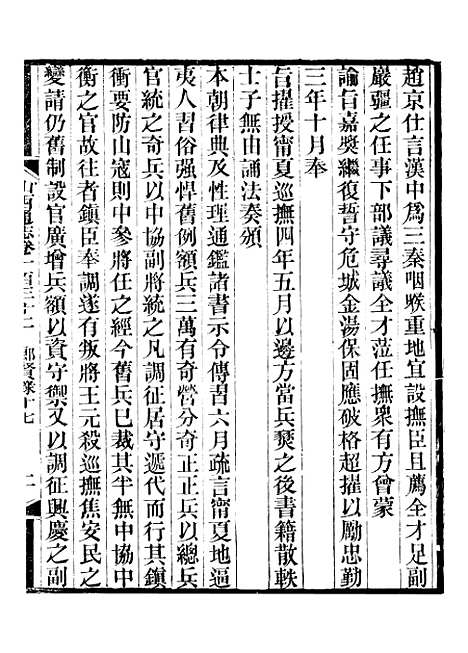 趙京仕言漢中爲三秦咽喉重地宜設撫臣且薦全才足副
嚴疆之任事下部議尋議全才蒞任撫衆有方曾蒙
諭旨嘉獎繼復誓守危城金湯保固應破格超擢以勵忠勤
三年十月奉
旨擢授甯夏巡撫四年五月以邊方當兵燹之後書籍散軼
士子無由誦法奏頒
本朝律典及性理通鑑諸書示令傳習六月疏言甯夏地逼
夷人習俗强悍舊例額兵三萬有奇營分奇正正兵以總兵
官統之奇兵以中協副將統之凡調征居守遞代而行其鎭
衝要防山寇則中參將任之經今舊兵已裁其半無中協中
衡之官故往者鎭臣奉調遂有叛將王元殺巡撫焦安民之
變請仍舊制設官廣增兵額以資守禦又以調征興慶之副
山西通志卷一百三十二 鄕賢錄十七